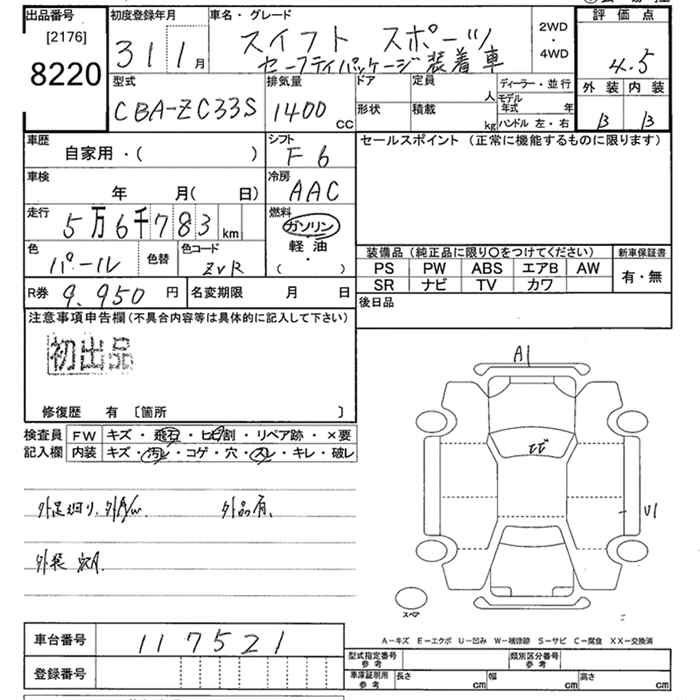 出品番号 初度登録年月 車名・グレード 評価点
[2176]
8220
31 1 月
スイフト スポーツ
セーフティパッケージ装着車
2WD
・
4WD
4.5
外装 内装
B B
型式 排気量 ドア 定員 人 ディーラー・並行
CBA-ZC33S 1400 CC
形状 積載 kg モデル年式 年
ハンドル 左・右
車歴 シフト セールスポイント (正常に機能するものに限ります)
自家用・( ) F6
車検 冷房
年 月( 日) AAC
走行 燃料
5万6千783 km ガソリン
・
軽油
( )
色 色替 色コード
パール ZVR
装備品(純正品に限り〇をつけてください) 新車保証書
PS PW ABS エアB AW 有・無
SR ナビ TV カワ
R券 9.950 円 名変期限 月 日
後日品
注意事項申告欄(不具合内容等は具体的に記入して下さい)
初出品
修復歴 有 〔箇所 〕
検査員 FW キズ・飛石・ヒビ割・リペア跡・×要
記入欄 内装 キズ・汚レ・コゲ・穴・スレ・キレ・破レ
外品有、
A1
ヒビ
U1
スペア
A-キズ E-エクボ U-凹み W-補修跡 S-サビ C-腐食 XX-交換済
車台番号 117521
登録番号
型式指定番号 参考 類別区分番号 参考
車庫証明用 参考 長さ cm 幅 cm 高さ cm